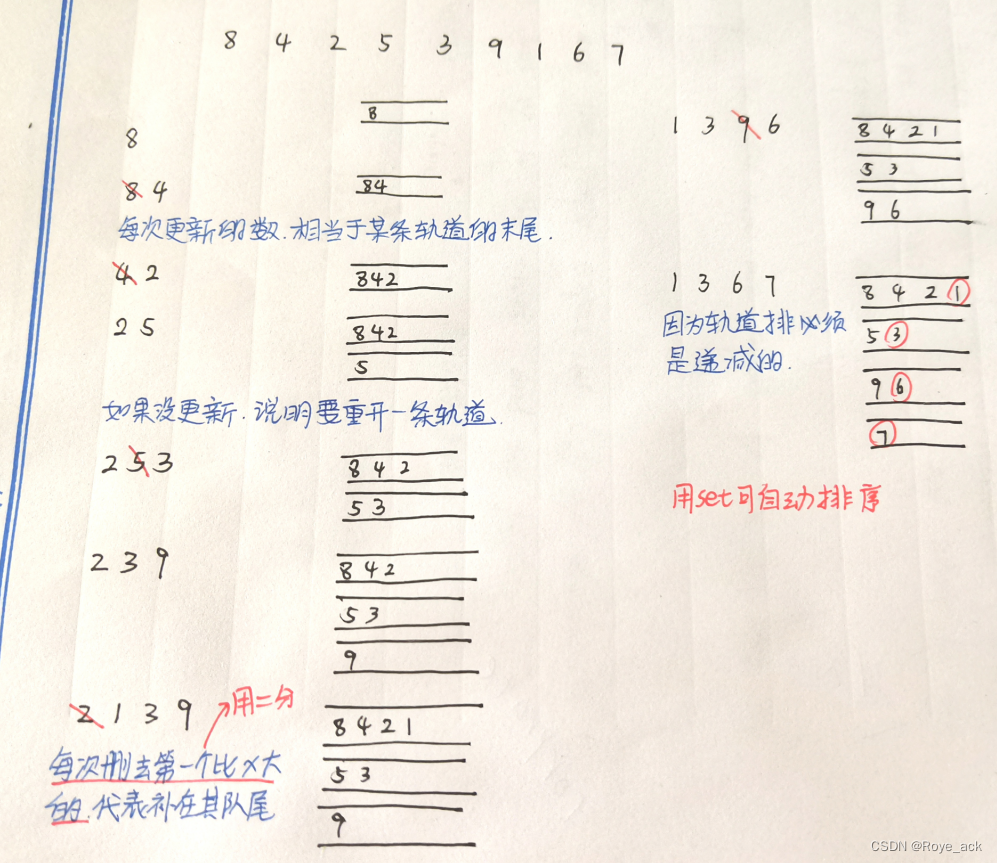 8 4 2 5 3 9 1 6 7
8
8
8 4
84
每次更新的数.相当于某条轨道的末尾.
4 2
842
2 5
842
5
如果没更新.说明要重开一条轨道.
2 5 3
8 4 2
5 3
2 3 9
8 4 2
5 3
9
2 1 3 9
用二分
8 4 2 1
5 3
9
每次删去第一个比x大
的.代表补在其队尾
1 3 9 6
8 4 2 1
5 3
9 6
1 3 6 7
8 4 2 1
5 3
9 6
7
因为轨道排必须
是递减的.
用set可自动排序
CSDN @Roye_ack